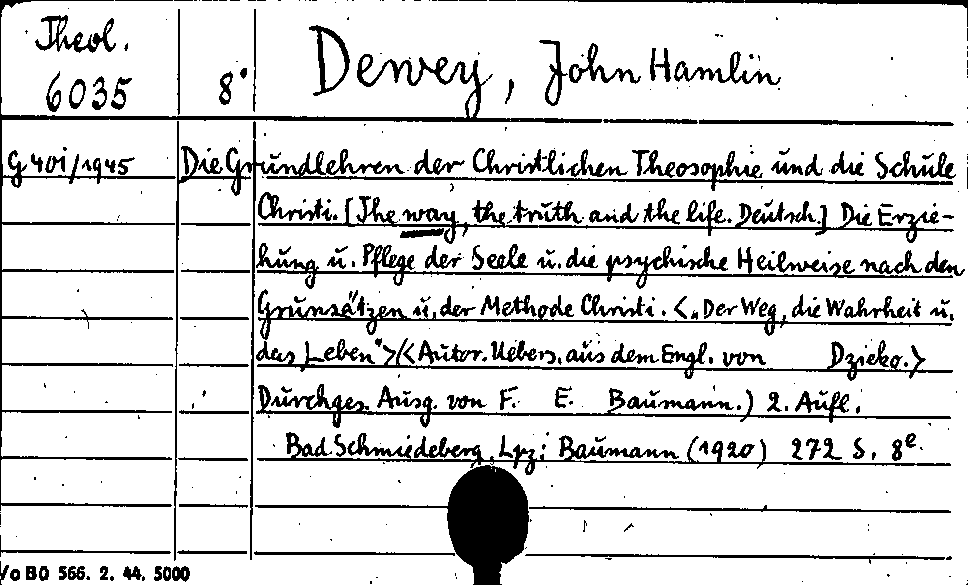 Theol.
6035
8°
Dewey, John Hamlin
G 401/1945
Die Grundlehren der Christlichen Theosophie und die Schule
Christi. [The way, the truth and the life. Deutsch.] Die Erzie-
hung u. Pflege der Seele u. die psychische Heilweise nach den
Grunsätzen u. der Methode Christi. <„Der Weg, die Wahrheit u.
das Leben">(<Autor. Uebers. aus dem Engl. von Dzieko.>
Durchges. Ausg. von F. E. Baumann.) 2. Aufl.
Bad Schmiedeberg, Lpz: Baumann (1920) 272 S. 8°
/o BÖ 566. 2. 44. 5000